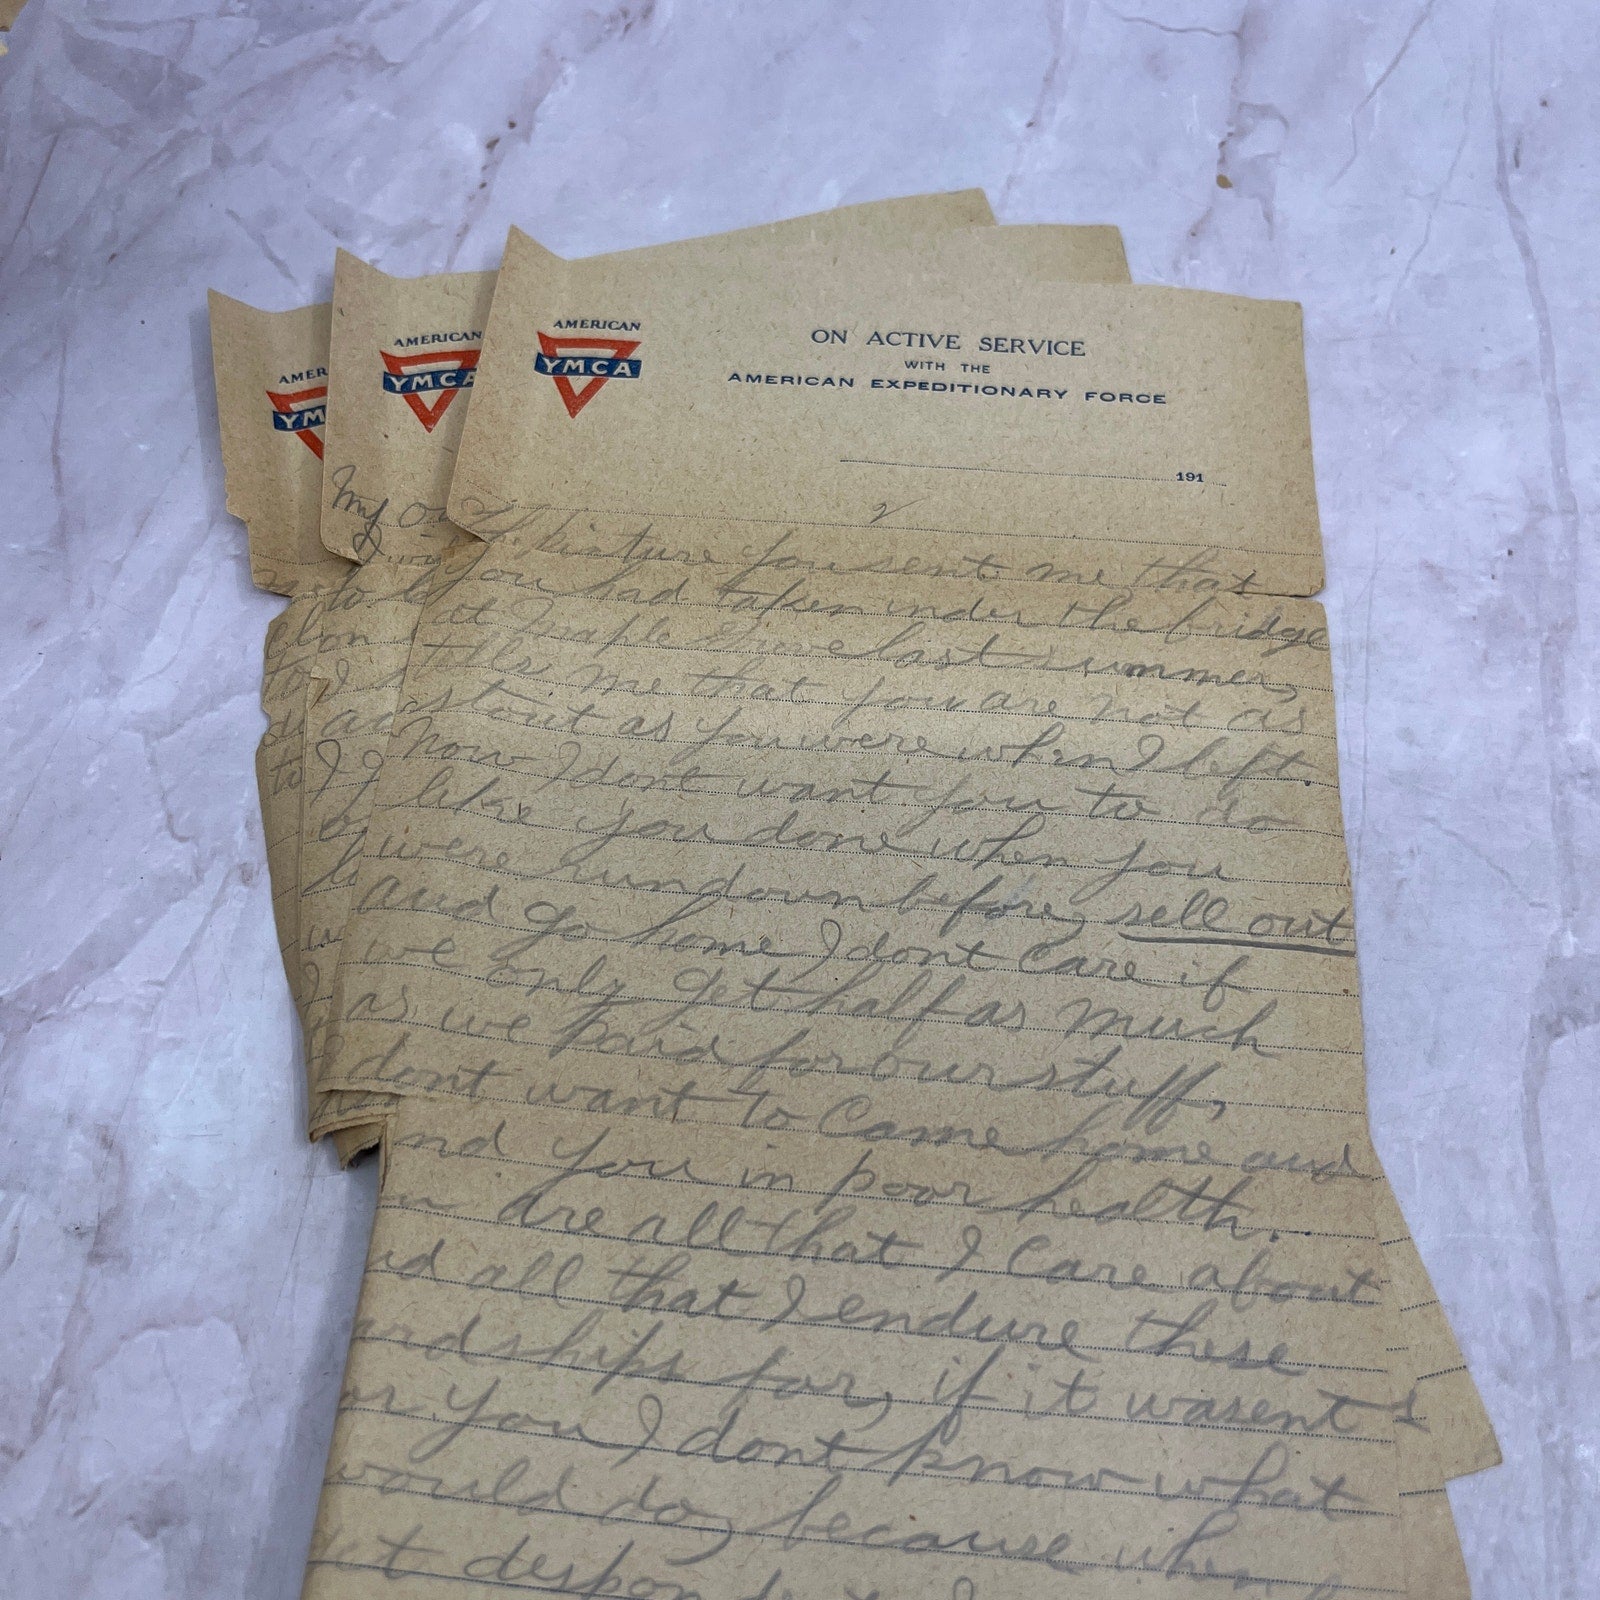 AMERICAN
YMCA
ON ACTIVE SERVICE
WITH THE
AMERICAN EXPEDITIONARY FORCE
191
2
The picture you sent me that
you had taken under the bridge
at Maple Grove last summer,
tells me that you are not as
stout as you were when I left.
Now I dont want you to do
like you done when you
were rundown before, sell out
and go home I dont care if
we only get half as much
as we paid for our stuff,
I dont want to Come home and
find you in poor health.
are all that I Care about
all that I endure these
for, if it wasent
you I dont know what
would do, because when
AMERICAN
YMCA
My
AMER
YM